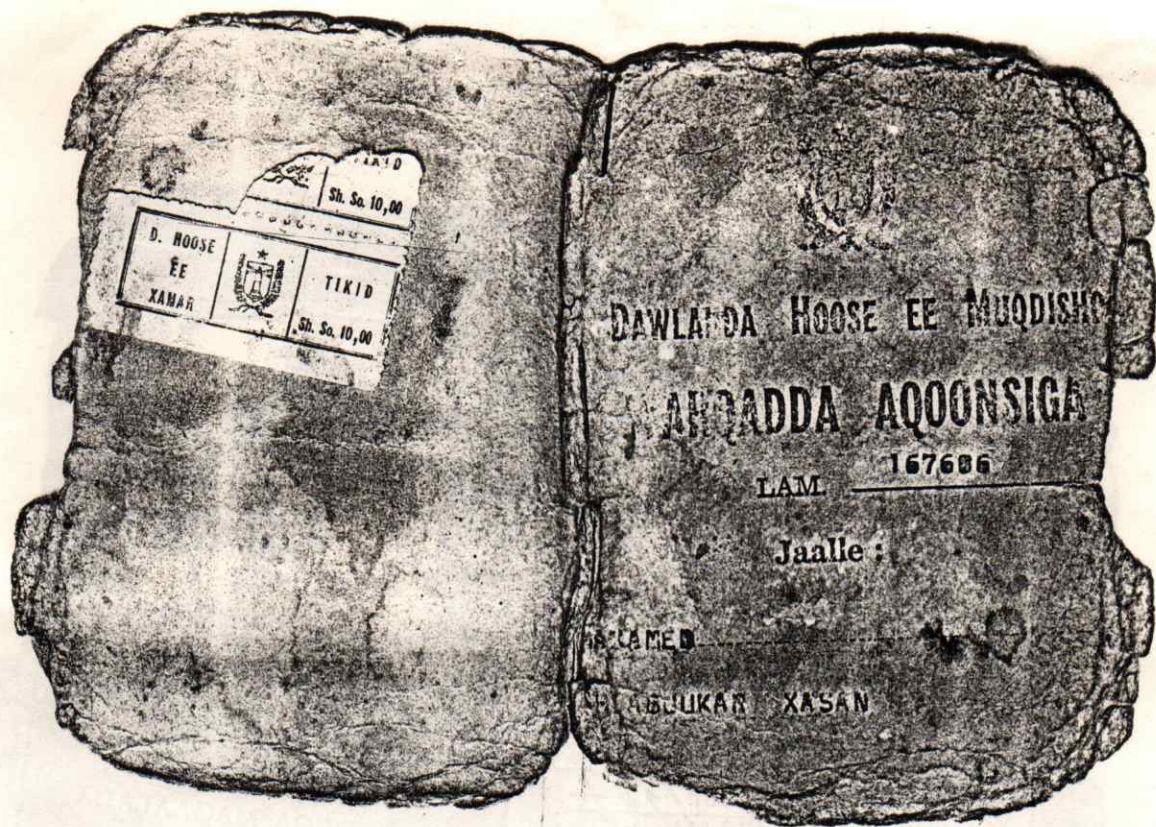 TIKID
Sh. So. 10,00
D. HOOSE
EE
XAMAR
TIKID
Sh. So. 10,00
DAWLADDA HOOSE EE MUQDISHO
WARQADDA AQOONSIGA
LAM. 167686
Jaalle :
XASAN